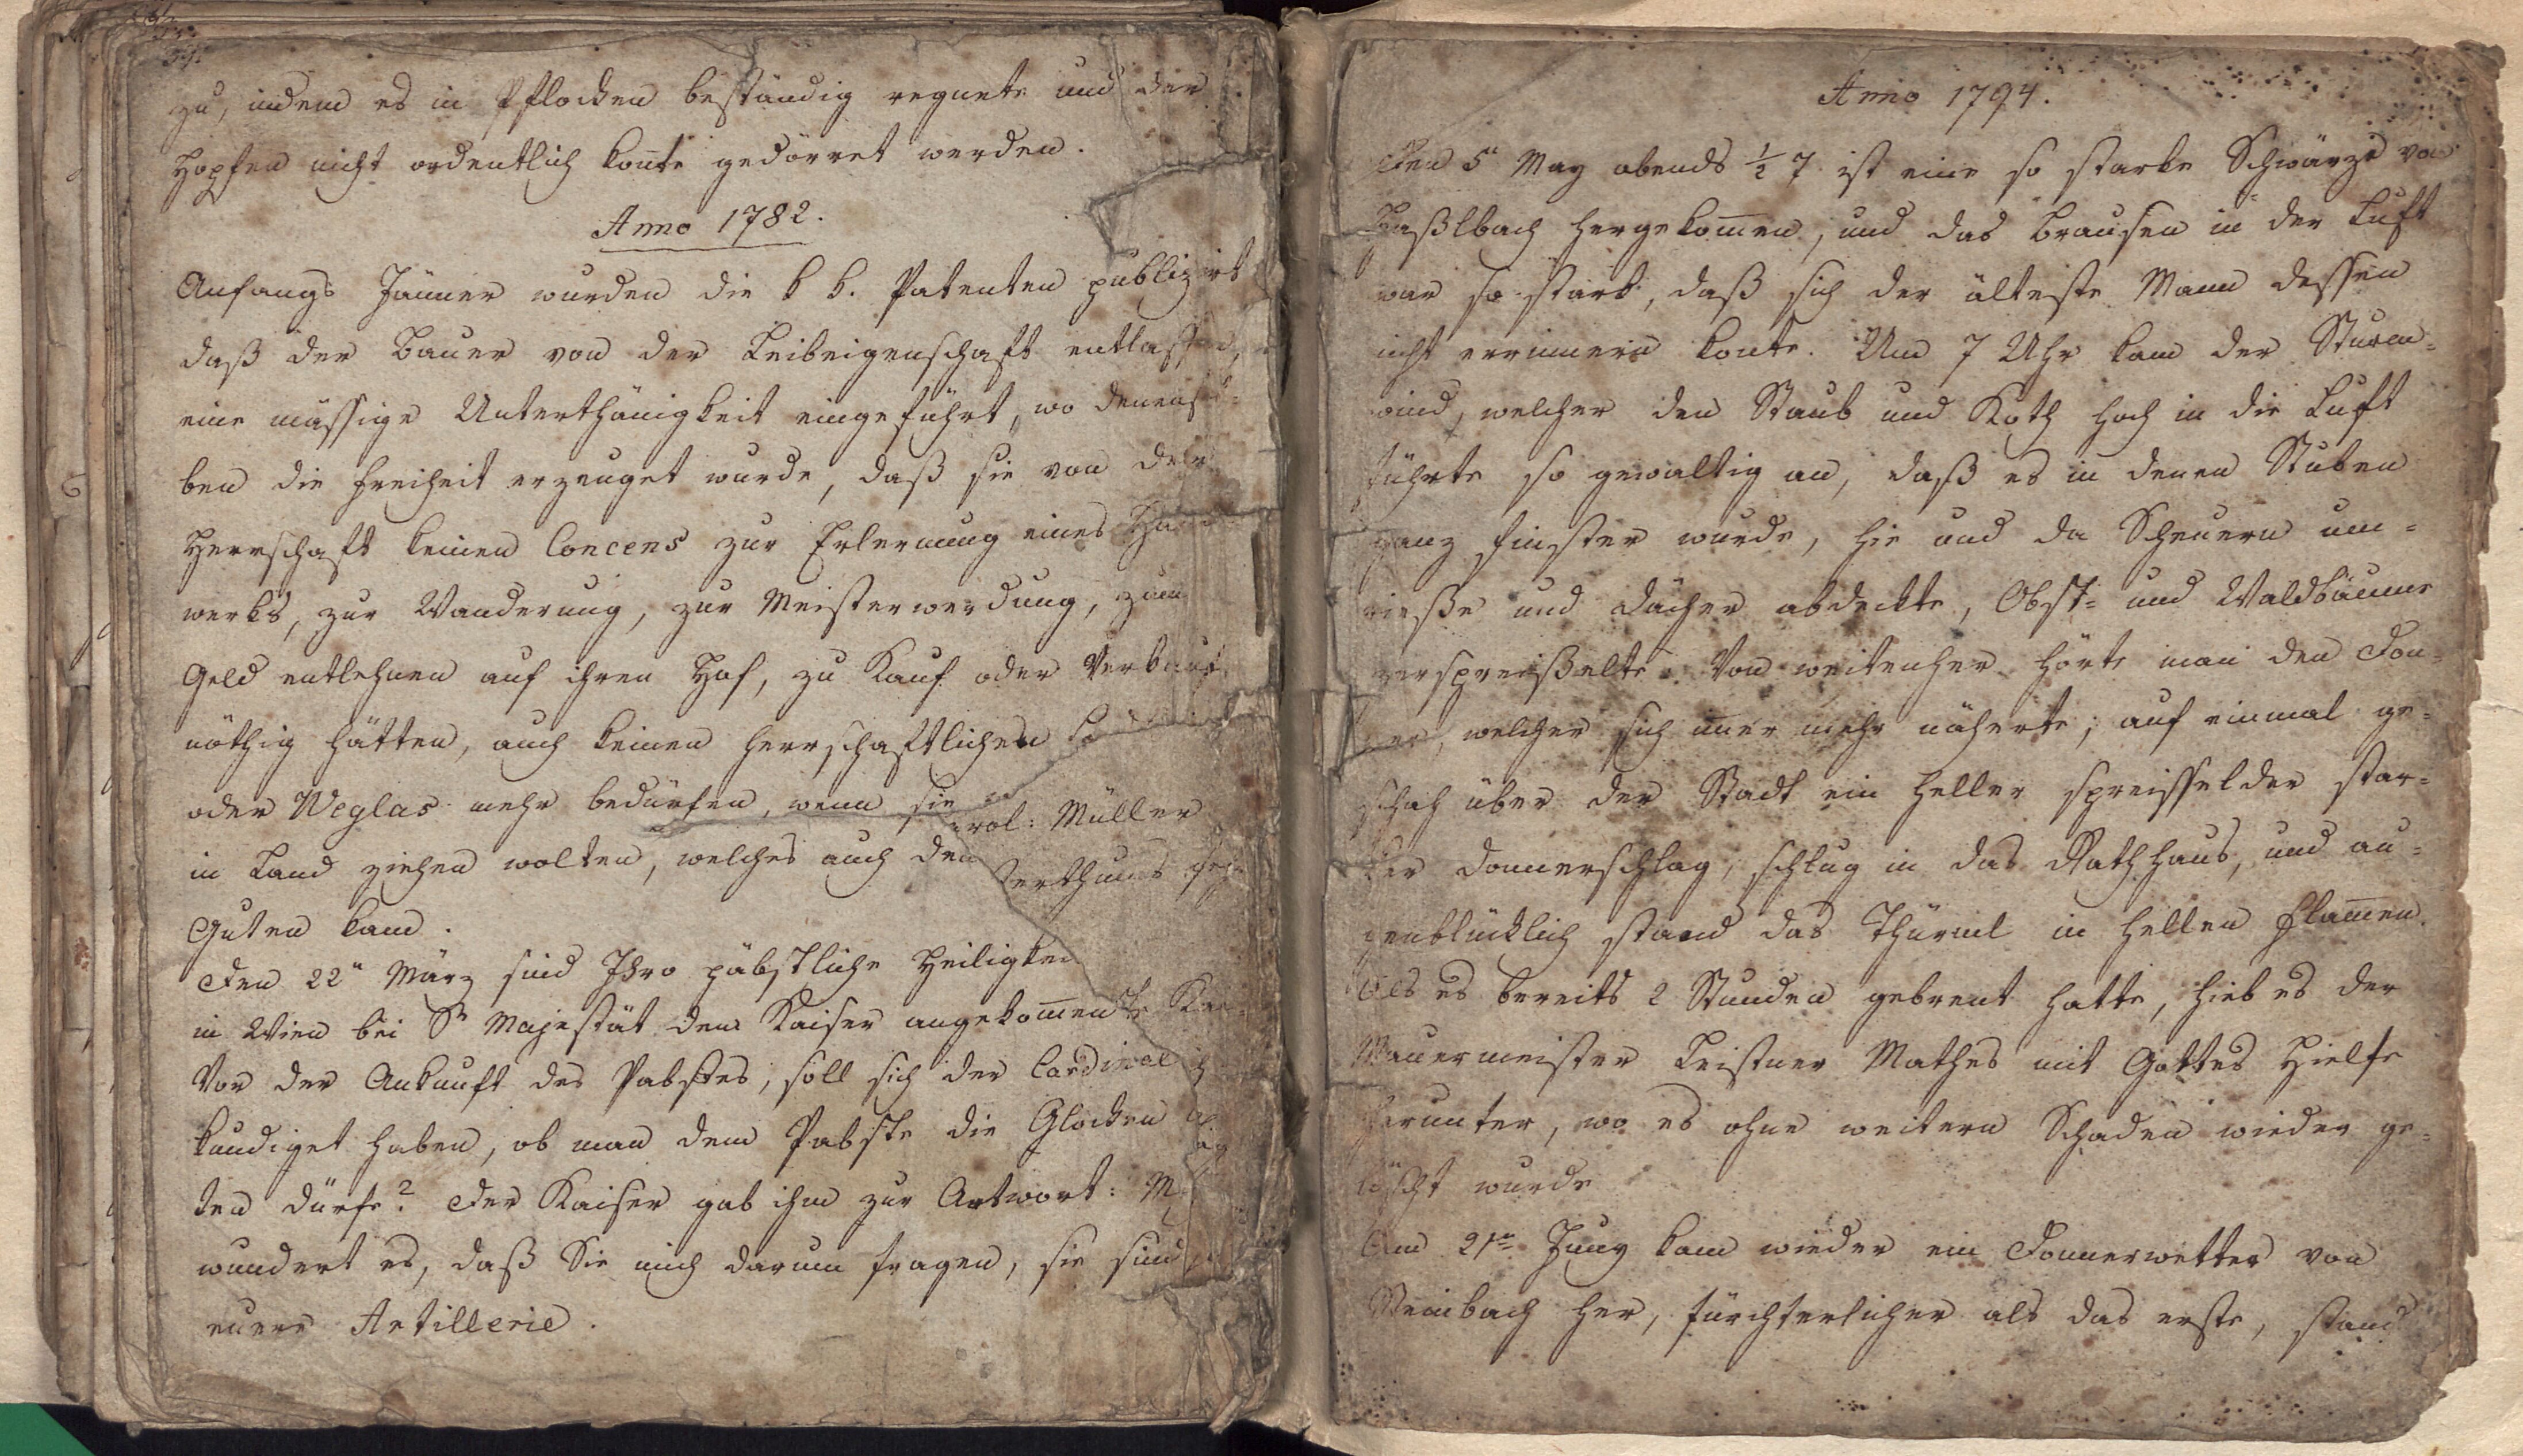 zu, indem es in Pflocken beständig regnete und der
Hopfen nicht ordentlich konte gedörret werden.
Anno 1782.
Anfangs Jänner wurden die k k. Patenten publizirt
daß der Bauer von der Leibeigenschaft entlassen,
eine mässige Unterthänigkeit eingeführt, wo denensel-
ben die Freiheit erzeuget wurde, daß sie von der
Herrschaft keinen Concens zur Erlernung eines Han
werks, zur Wanderung, zur Meisterwerdung, zum
Geld entlehnen auf ihren Hof, zu Kauf oder Verkauf
nöthig hätten, auch keinen herrschaftlichen
oder Weglas mehr bedürfen, wenn sie
rol: Müller
in Land ziehen wolten, welches auch den
erthums
Guten kam.
Den 22n März sind Ihro päbstliche Heiligkei
in Wien bei Sr Majestät dem Kaiser angekom̅en
Vor der Ankunft des Pabstes, soll sich der Cardinal
kundiget haben, ob man dem Pabste die Glocken
ten dürfe? Der Kaiser gab ihm zur Antwort: M
wundert es, daß Sie mich darum fragen, sie sind
euere Artillerie.
Anno 1794.
Den 5n May abends ½ 7 ist eine so starke Schwärze von
Haßlbach hergekom̅en, und das Brausen in der Luft
war so stark, daß sich der älteste Mann dessen
nicht errinnern konte. Um 7 Uhr kam der Sturm-
wind, welcher den Staub und Koth hoch in die Luft
führte so gewaltig an, daß es in denen Stuben
ganz finster wurde, hie und da Scheuern um-
rieße und Dächer abdeckte, Obst- und Waldbäume
zerspreißelte. Von weitenher hörte man den Don-
ner, welcher sich im̅er mehr näherte; auf einmal ge-
schah über der Stadt ein heller spreisselder star-
ker Donnerschlag, schlug in das Rathhaus, und au-
genblücklich stand das Thürml in hellen Flam̅en.
Als es bereits 2 Stunden gebrent hatte, hieb es der
Mauermeister Leistner Mathes mit Gottes Hielfe
herunter, wo es ohne weitern Schaden wieder ge-
löscht wurde
Am 21n Juny kam wieder ein Donnerwetter von
Steinbach her, fürchterlicher als das erste, stand